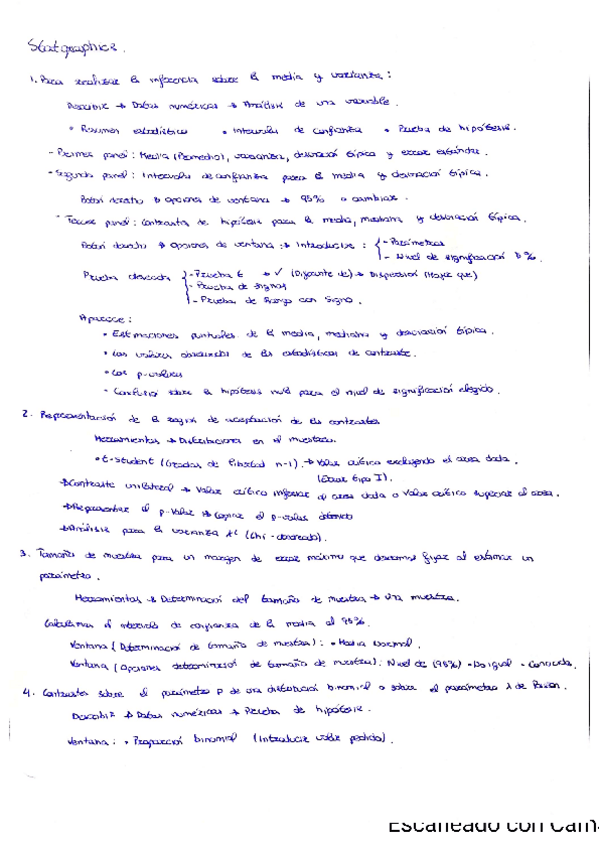 Statgraphics.
1. Para realizar la inferencia sobre la media y varianza:
Describir → Datos numéricos → Análisis de una variable.
• Resumen estadístico • Intervalos de confianza • Prueba de hipótesis.
- Primer panel: Media (Promedio), varianza, desviación típica y error estándar.
- Segundo panel: Intervalos de confianza para la media y desviación típica.
Botón derecho → opciones de ventana → 95% o cambiar.
- Tercer panel: Contraste de hipótesis para la media, mediana y desviación típica.
Botón derecho → Opciones de ventana → Introducir: { - Parámetros
- Nivel de significación %.
Prueba deseada { - Prueba t → ✓ (Diferente de) → Dispersión (Mayor que)
- Prueba de signos
- Prueba de Rango con Signo.
Aparece:
• Estimaciones puntuales de la media, mediana y desviación típica.
• Los valores obtenidos de los estadísticos de contraste.
• Los p-valores
• Conclusión sobre la hipótesis nula para el nivel de significación elegido.
2. Representación de la región de aceptación de los contrastes
Herramientas → Distribuciones en el muestreo.
• t-student (Grados de libertad n-1). → Valor crítico excluyendo el área dada.
(Error tipo I).
→ Contraste unilateral → Valor crítico inferior al área dada o Valor crítico superior al área.
→ Representar el p-valor → Copiar el p-valor obtenido
→ Análisis para la varianza (Chi-cuadrado).
3. Tamaño de muestra para un margen de error máximo que deseamos fijar al estimar un
parámetro.
Herramientas → Determinación del tamaño de muestra → Una muestra.
Calculamos el intervalo de confianza de la media al 95%.
Ventana (Determinación de tamaño de muestra): • Media Normal.
Ventana (Opciones determinación de tamaño de muestra): Nivel de (95%) • No igual • Conocida.
4. Contrastes sobre el parámetro p de una distribución binomial o sobre el parámetro λ de Poisson.
Describir → Datos numéricos → Prueba de hipótesis.
Ventana: • Proporción binomial (Introducir valor pedido).
Escaneado con Cam